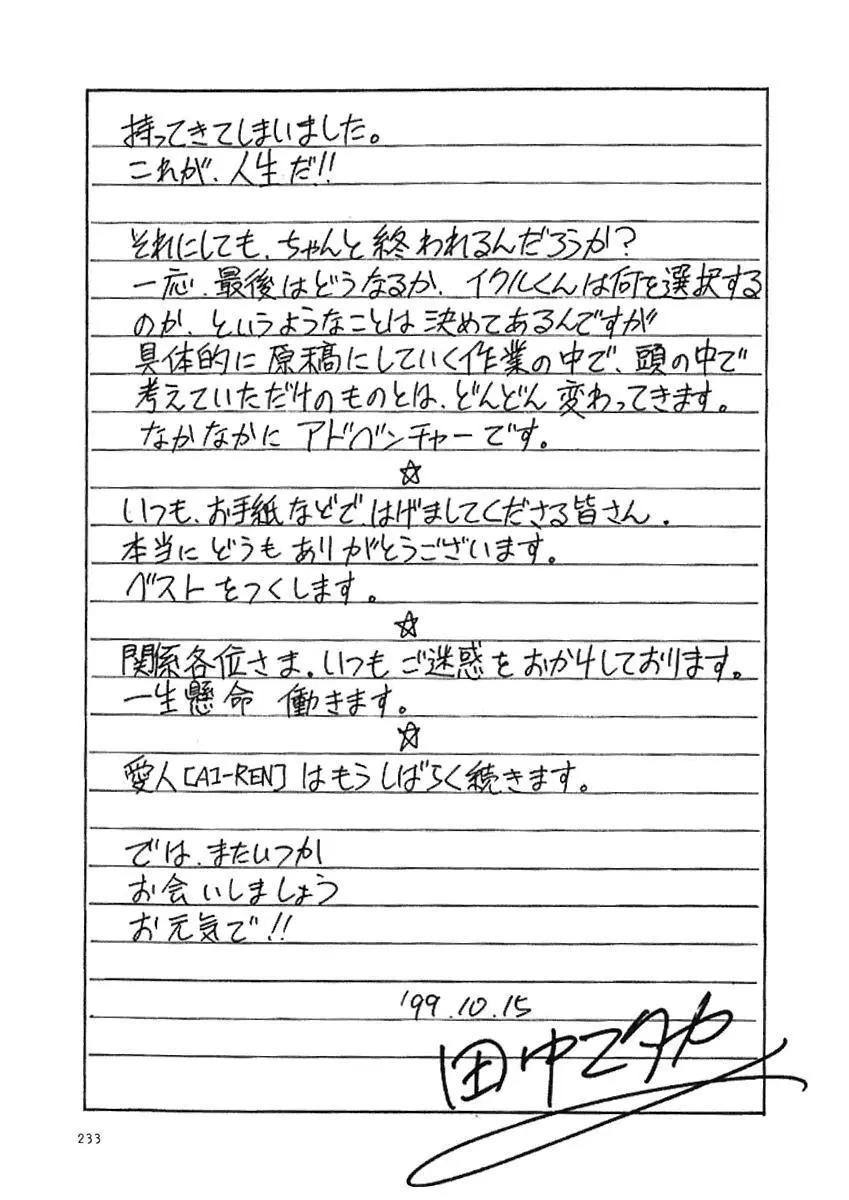 持ってきてしまいました。
これが、人生だ!!
それにしても、ちゃんと終われるんだろうか?
一応、最後はどうなるか、イクルくんは何を選択する
のか、というようなことは決めてあるんですが
具体的に原稿にしていく作業の中で、頭の中で
考えていただけのものとは、どんどん変わってきます。
なかなかにアドベンチャーです。
☆
いつも、お手紙などで、はげましてくださる皆さん、
本当にどうもありがとうございます。
ベストをつくします。
☆
関係各位さま。いつもご迷惑をおかけしております。
一生懸命 働きます。
☆
愛人[AI-REN]はもうしばらく続きます。
では、またいつか
お会いしましょう
お元気で!!
'99.10.15
田中ユタカ
233